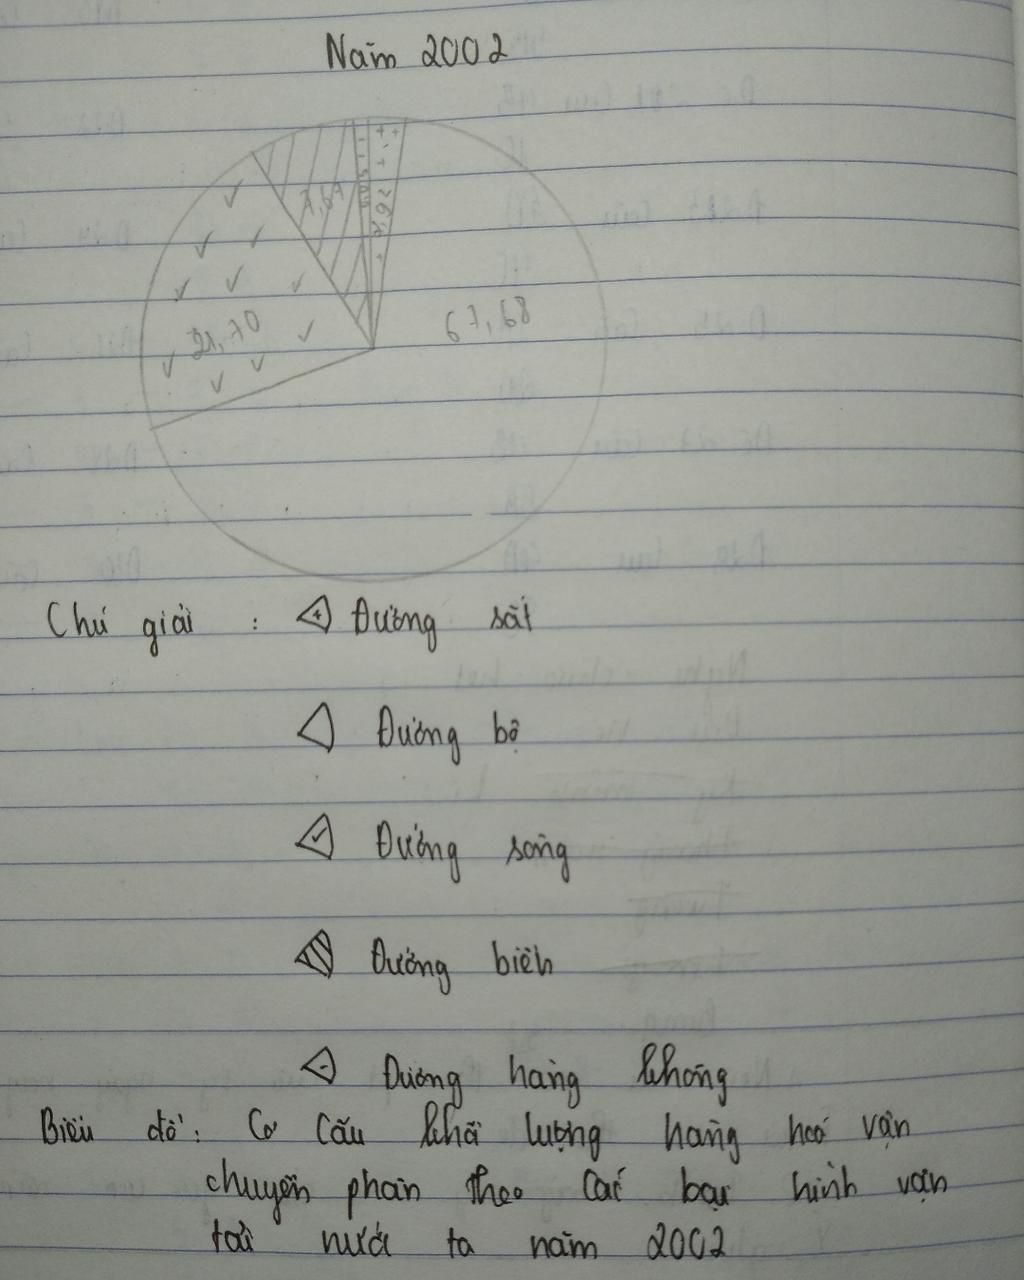 Năm 2002
7,67
2,92
21,70
67,68
Chú giải : Đường sắt
Đường bộ
Đường sông
Đường biển
Đường hàng không
Biểu đồ : Cơ cấu khối lượng hàng hoá vận
chuyển phân theo các loại hình vận
tải nước ta năm 2002